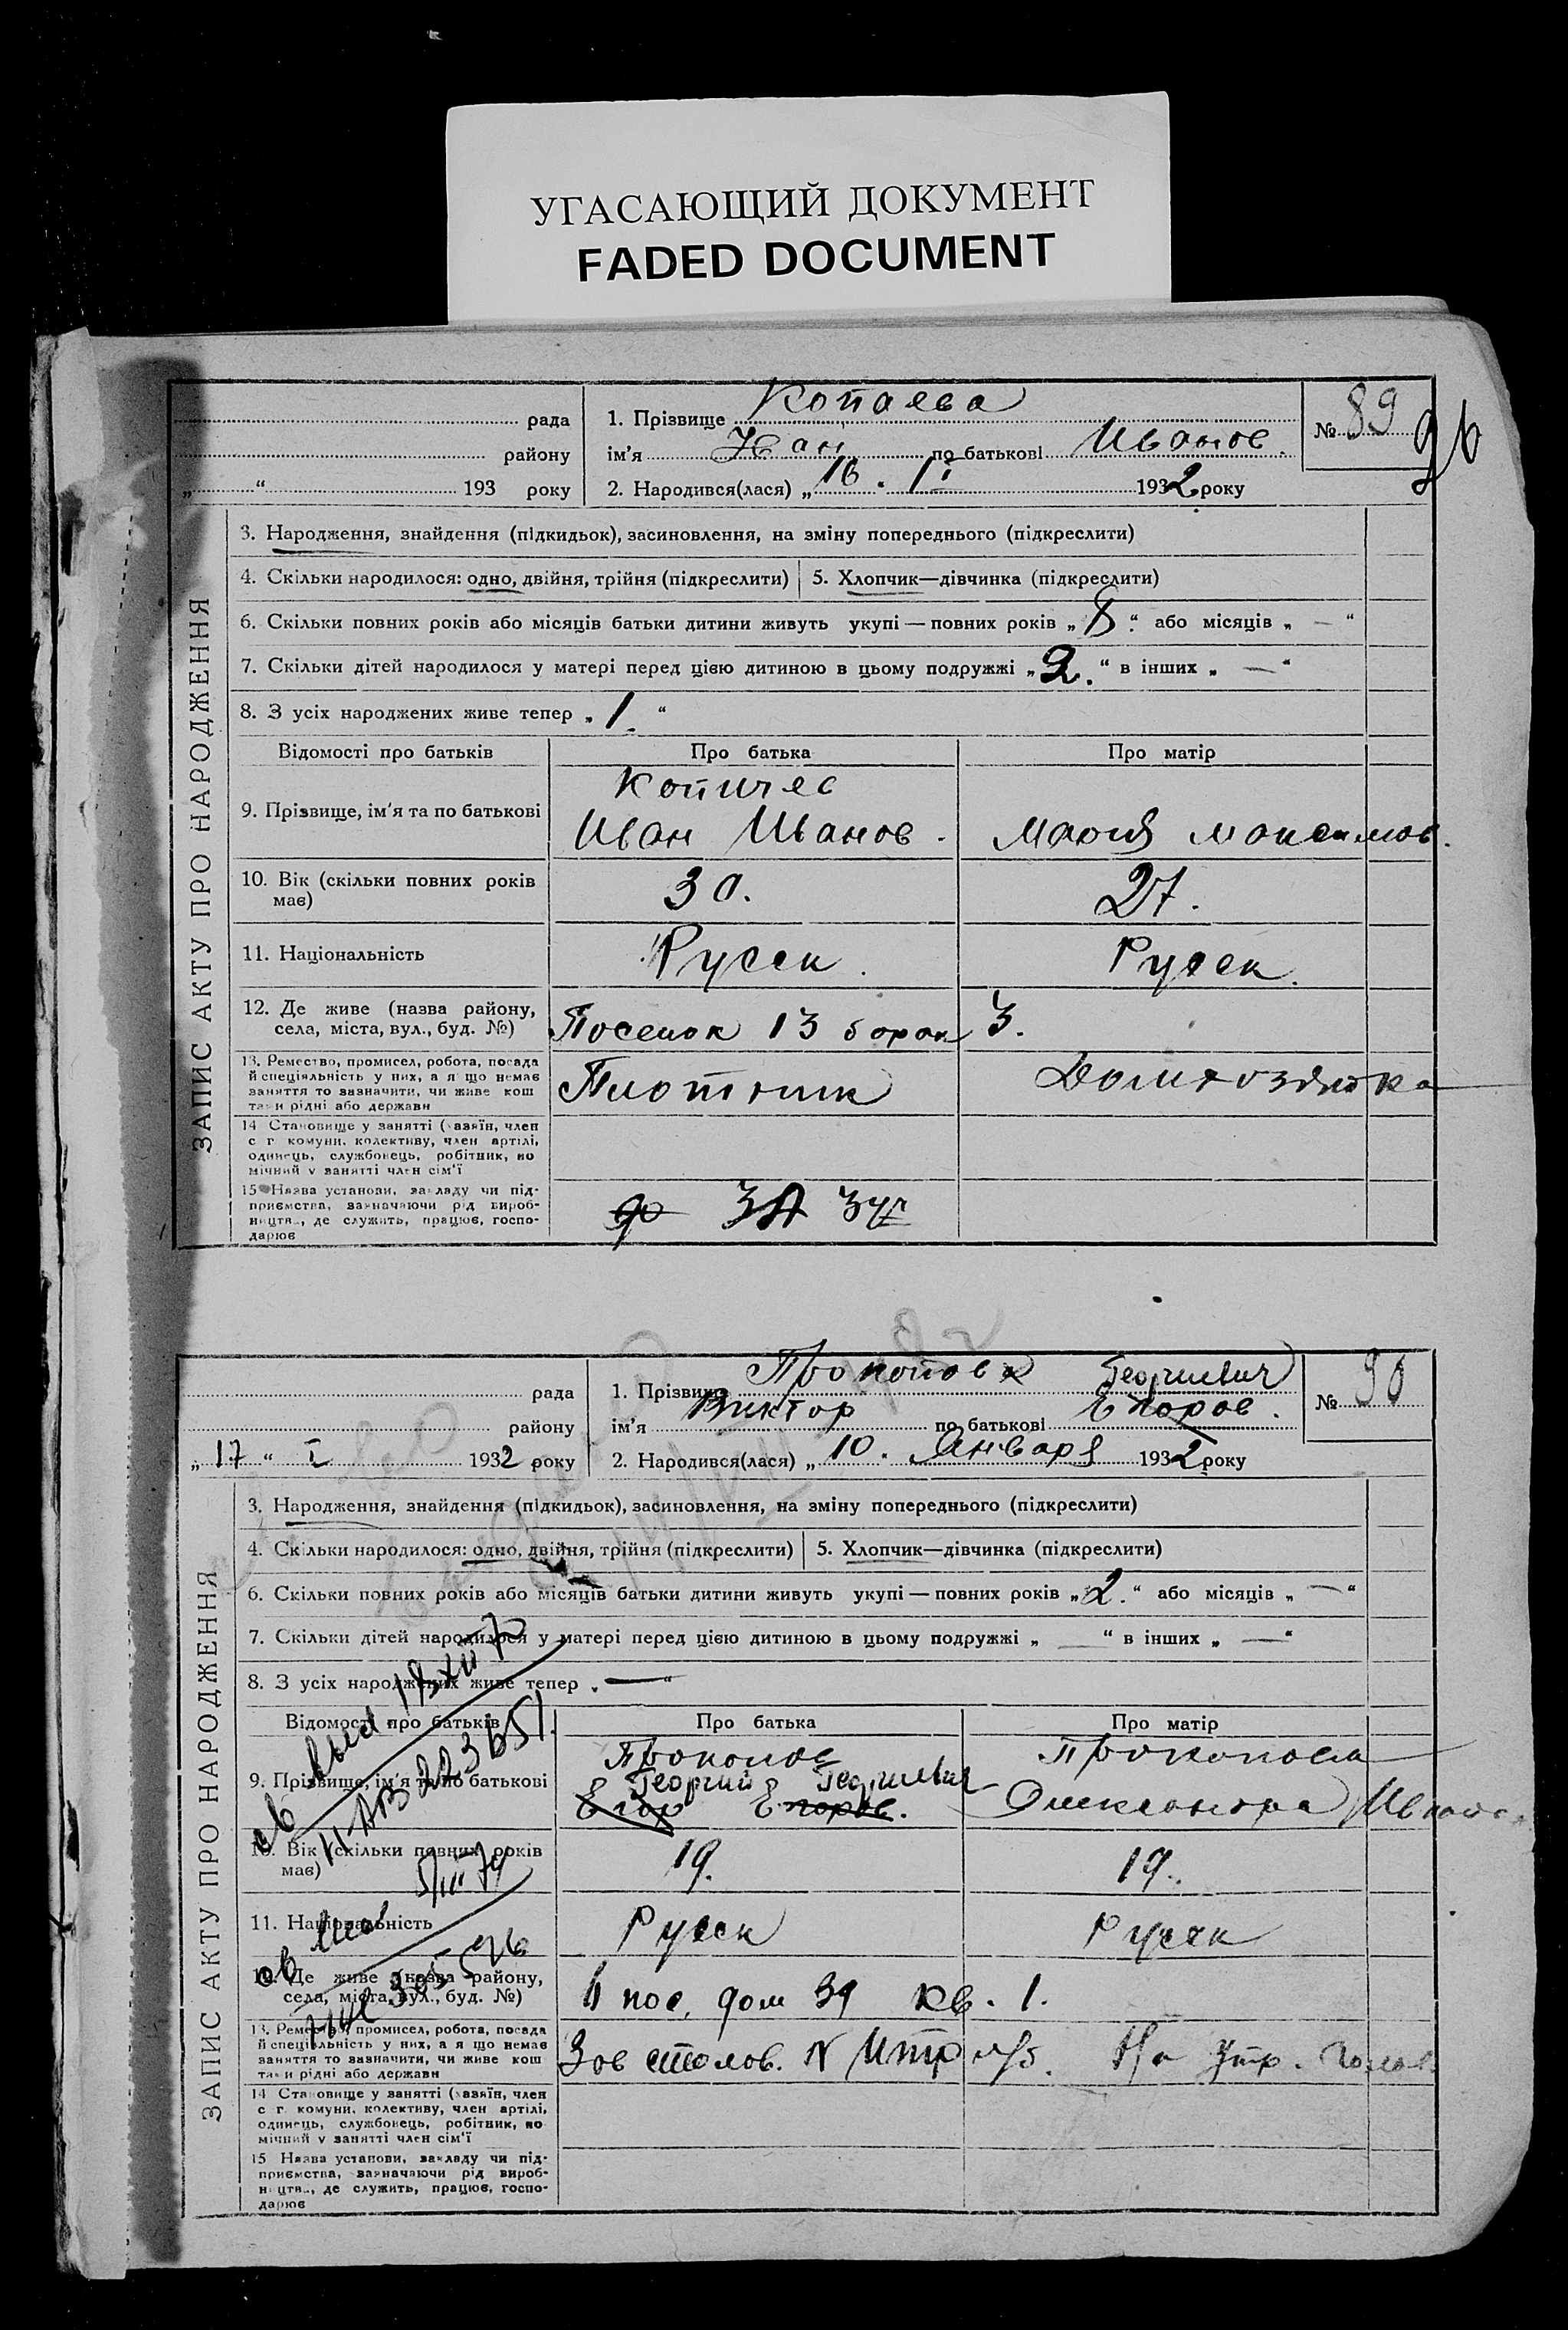 УГАСАЮЩИЙ ДОКУМЕНТ
FADED DOCUMENT
рада
району
„ “ 193 року
1. Прізвище Копаева
ім'я по батькові Иванов.
2. Народився(лася) „ 16. I 1932 року
№ 89
90
ЗАПИС АКТУ ПРО НАРОДЖЕННЯ
3. Народження, знайдення (підкидьок), засиновлення, на зміну попереднього (підкреслити)
4. Скільки народилося: одно, двійня, трійня (підкреслити) 5. Хлопчик—дівчинка (підкреслити)
6. Скільки повних років або місяців батьки дитини живуть укупі — повних років „ 8 “ або місяців „ — “
7. Скільки дітей народилося у матері перед цією дитиною в цьому подружжі „ 2. “ в інших „ — “
8. З усіх народжених живе тепер „ 1. “
Відомості про батьків Про батька Про матір
9. Прізвище, ім'я та по батькові
Иван Иванов. Мария Максимов.
10. Вік (скільки повних років має) 30. 27.
11. Національність Русск. Русск.
12. Де живе (назва району, села, міста, вул., буд. №) Поселок 13 барак 3.
13. Ремество, промисел, робота, посада й спеціяльність у них, а я що немає заняття то зазначити, чи живе кош тами рідні або держави Плотник Домхозяйка
14 Становище у занятті (хазяїн, член с г комуни, колективу, член артілі, одинець, службовець, робітник, по мічний у занятті член сім'ї
15 Назва установи, закладу чи підприємства, зазначаючи рід виробництва, де служить, працює, господарює
рада
району
„ 17 “ I 1932 року
1. Прізвище Прокопов
Георгиевич
ім'я Виктор по батькові Егоров.
2. Народився(лася) „ 10. Января 1932 року
№ 90
ЗАПИС АКТУ ПРО НАРОДЖЕННЯ
3. Народження, знайдення (підкидьок), засиновлення, на зміну попереднього (підкреслити)
4. Скільки народилося: одно, двійня, трійня (підкреслити) 5. Хлопчик—дівчинка (підкреслити)
6. Скільки повних років або місяців батьки дитини живуть укупі — повних років „ 2. “ або місяців „ — “
7. Скільки дітей народилося у матері перед цією дитиною в цьому подружжі „ — “ в інших „ — “
8. З усіх народжених живе тепер „ — “
Відомості про батьків Про батька Про матір
Прокопов Прокопова
9. Прізвище, ім'я та по батькові Георгий Георгиевич
Егор Егоров. Александра Иванов.
10. Вік (скільки повних років має) 19. 19.
11. Національність Русск Русск
12. Де живе (назва району, села, міста, вул., буд. №) 6 пос. дом 39 кв. 1.
13. Ремество, промисел, робота, посада й спеціяльність у них, а я що немає заняття то зазначити, чи живе кош тами рідні або держави Зав столов.
14 Становище у занятті (хазяїн, член с г комуни, колективу, член артілі, одинець, службовець, робітник, по мічний у занятті член сім'ї
15 Назва установи, закладу чи підприємства, зазначаючи рід виробництва, де служить, працює, господарює